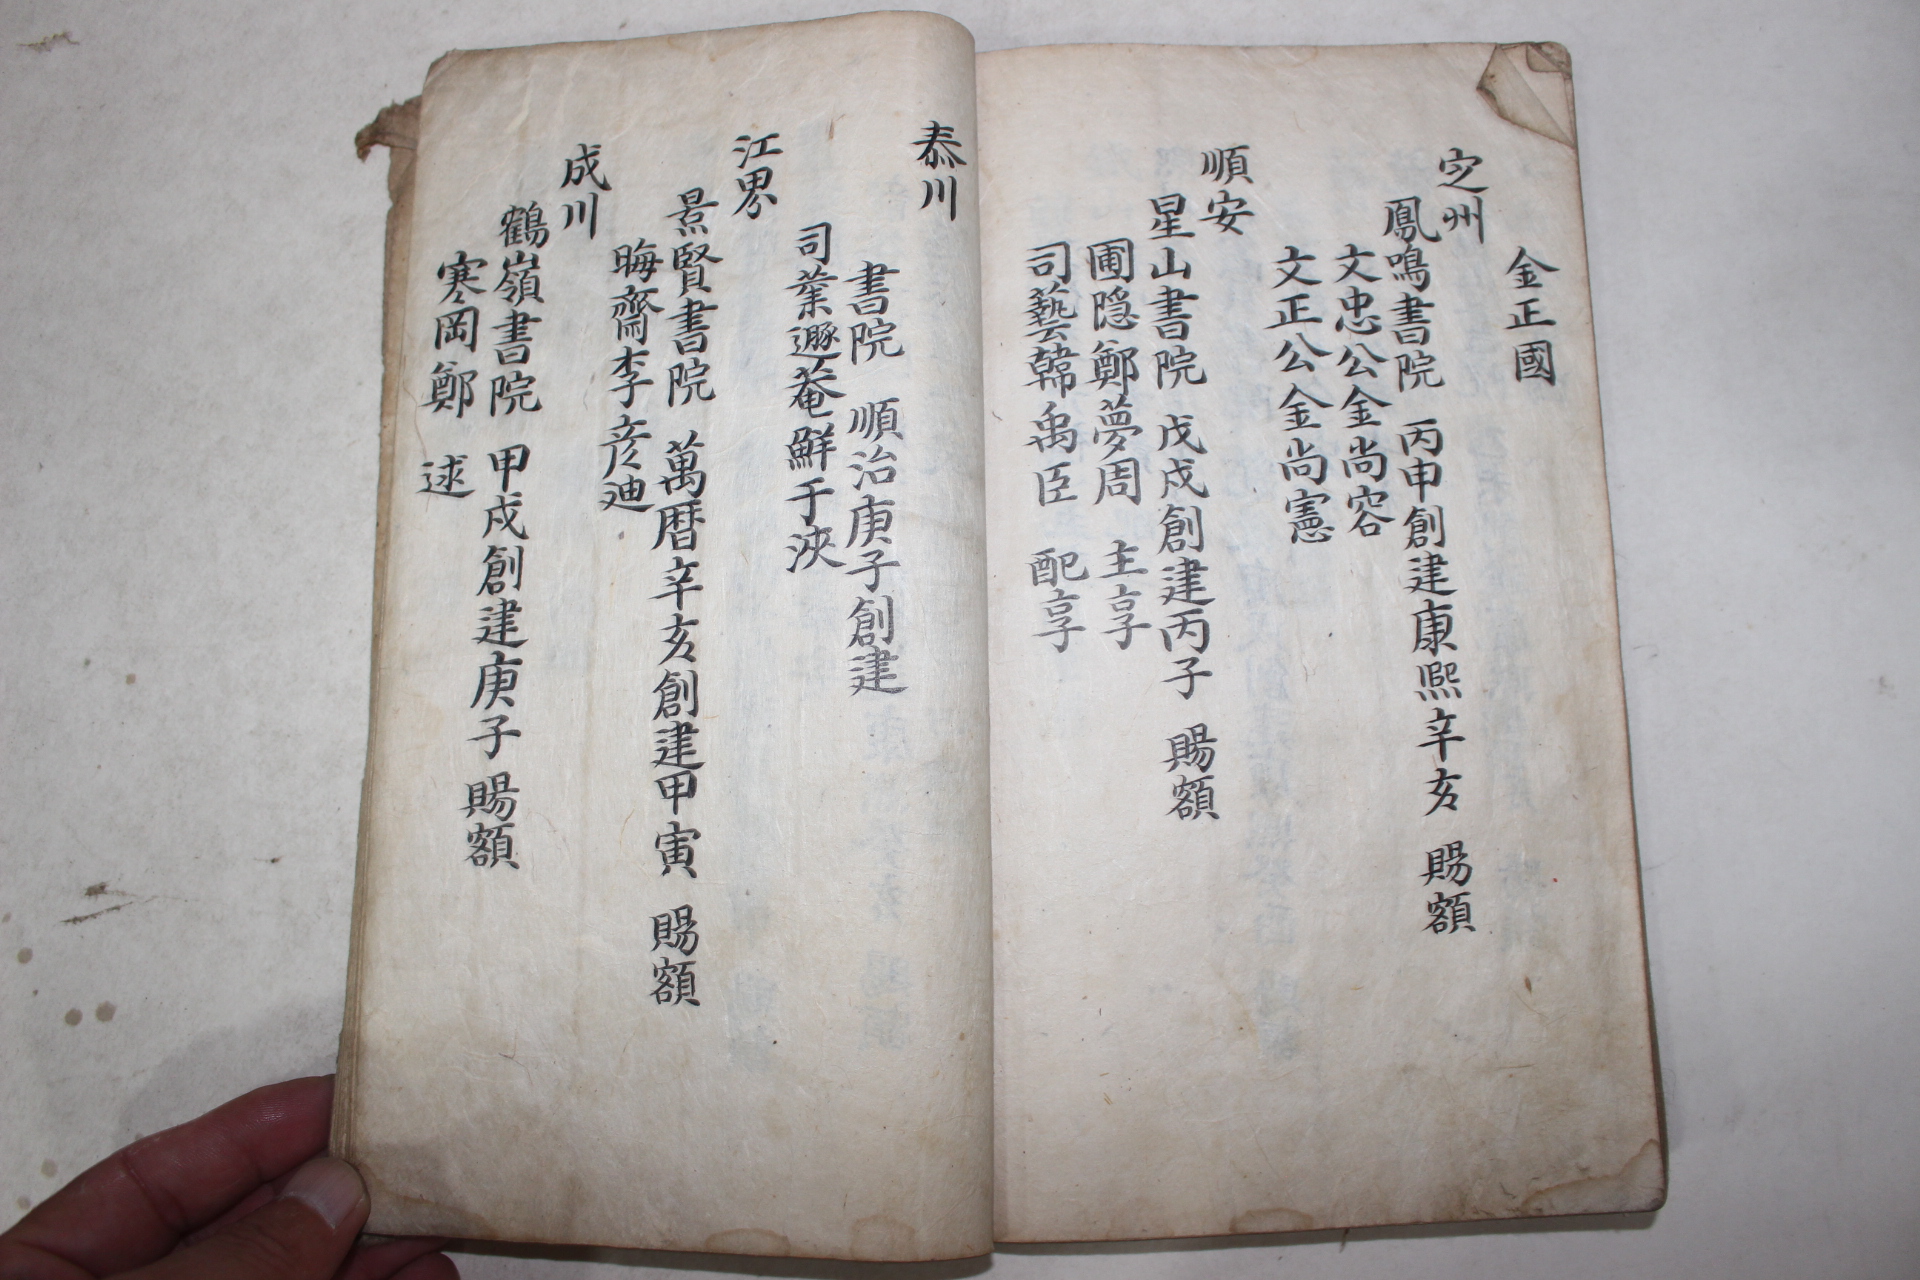 金正國
定州
鳳鳴書院 丙申創建康熙辛亥 賜額
文忠公金尙容
文正公金尙憲
順安
星山書院 戊戌創建丙子 賜額
圃隱鄭夢周 主享
司藝韓禹臣 配享
泰川
書院 順治庚子創建
司業遯菴鮮于浹
江界
景賢書院 萬曆辛亥創建甲寅 賜額
晦齋李彦迪
成川
鶴嶺書院 甲戌創建庚子 賜額
寒岡鄭 逑